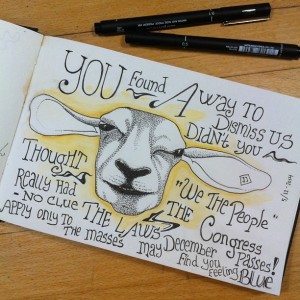 YOU Found A WAY TO
Dismiss US
Didn't you
Thought
Really Had
No Clue
"We The People"
THE LAWS THE Congress Passes!
APPLY only To The Masses May December Find you Feeling Blue
5/12-2014